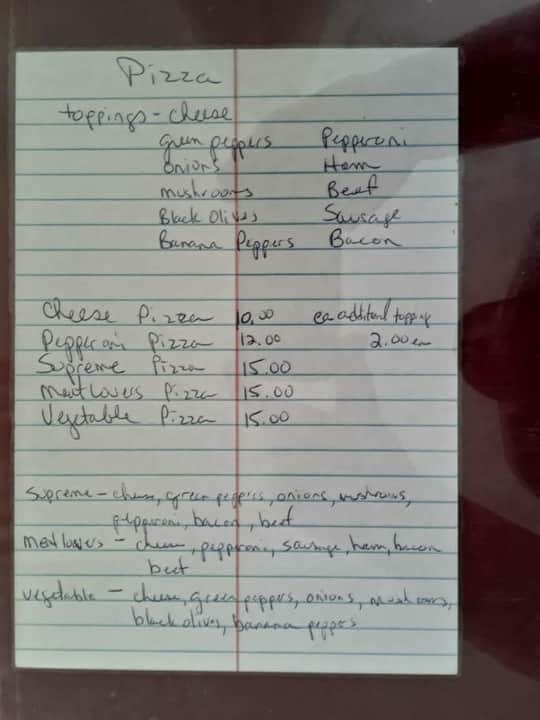 Pizza
toppings - cheese
green peppers Pepperoni
onions Ham
mushrooms Beef
Black Olives Sausage
Banana Peppers Bacon
Cheese Pizza 10.00 ea additional topping
Pepperoni Pizza 12.00 2.00 ea
Supreme Pizza 15.00
Meat lovers Pizza 15.00
Vegetable Pizza 15.00
supreme - cheese, green peppers, onions, mushrooms,
pepperoni, bacon, beef
meat lovers - cheese, pepperoni, sausage, ham, bacon
beef
vegetable - cheese, green peppers, onions, mushrooms,
black olives, banana peppers